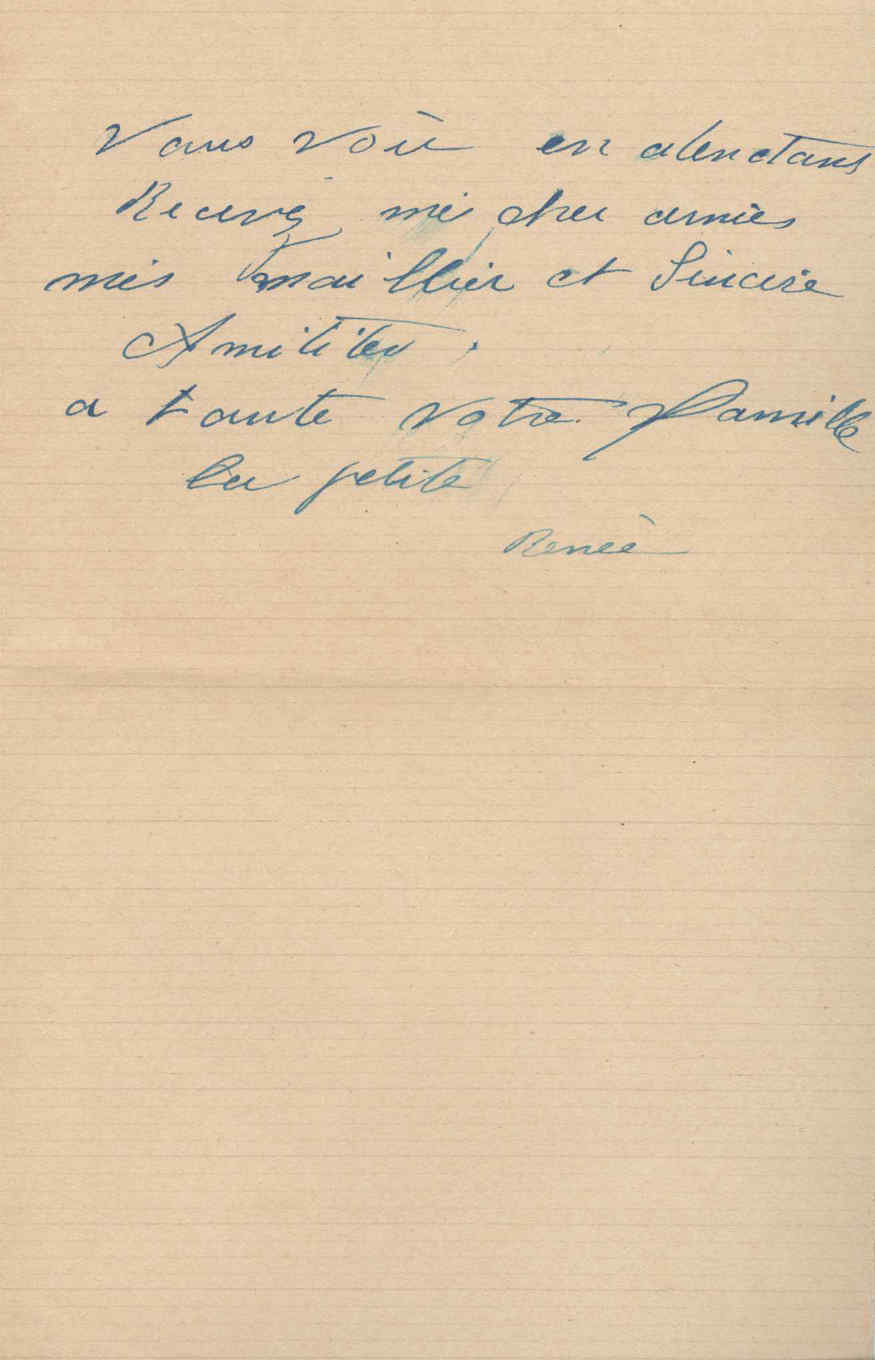 Vous voir en atenctans
Recevé mes cher amies
mes maillier et Sincère
Amitiées.
a toute votre famille
la petite
Renée